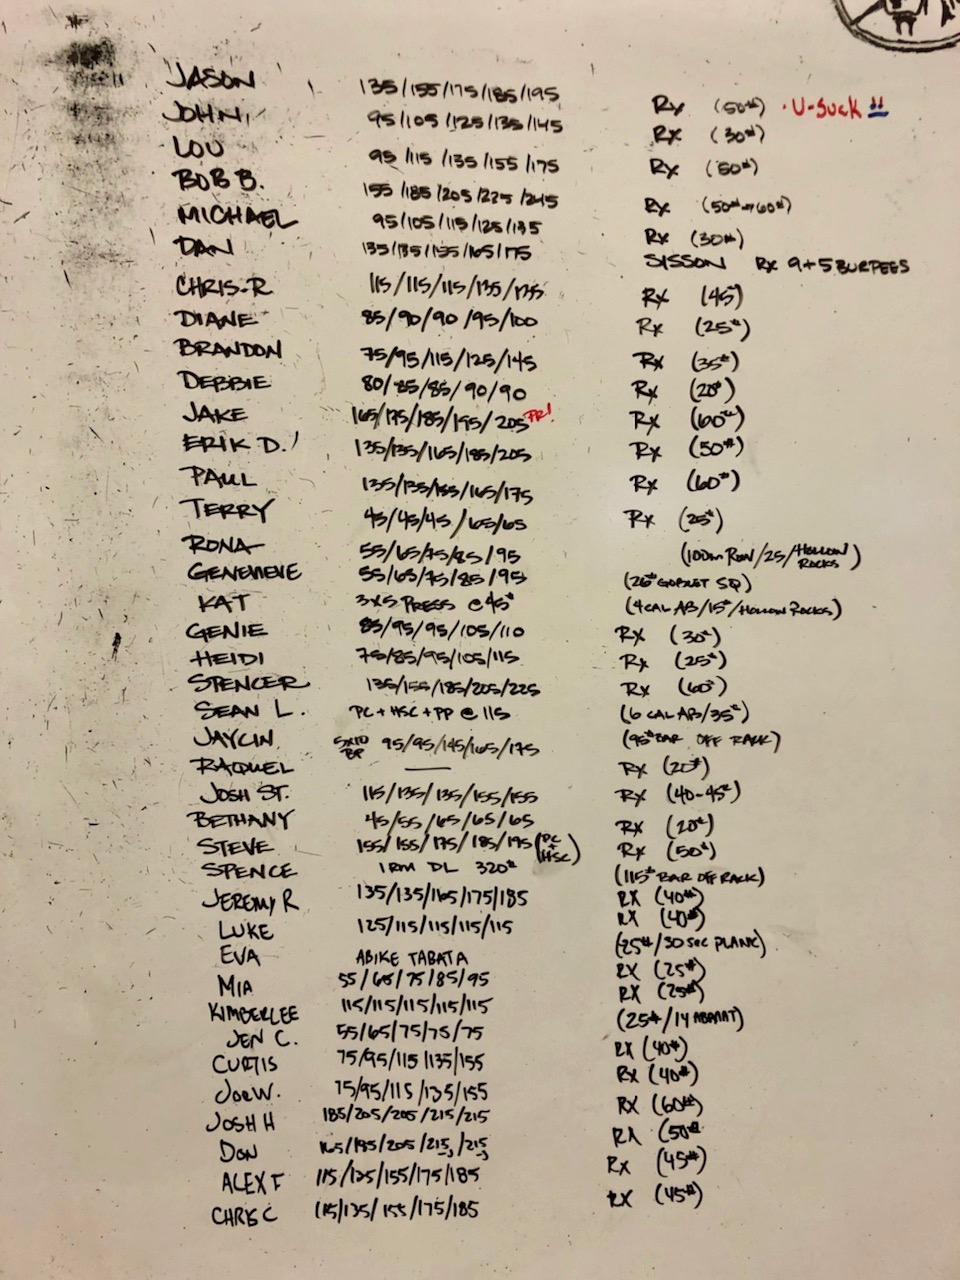 JASON 135/155/175/185/195 Rx (50#) · U-SUCK !!
JOHN 95/105/125/135/145 Rx (30#)
LOU 95/115/135/155/175 Rx (50#)
BOB B. 155/185/205/225/245 Rx (50#→60#)
MICHAEL 95/105/115/125/135 Rx (30#)
DAN 135/135/155/165/175 SISSON Rx 9+5 BURPEES
CHRIS-R 115/115/115/135/135 Rx (45#)
DIANE 85/90/90/95/100 Rx (25#)
BRANDON 75/95/115/125/145 Rx (35#)
DEBBIE 80/85/85/90/90 Rx (20#)
JAKE 165/175/185/195/205 PR! Rx (60#)
ERIK D. 135/135/165/185/205 Rx (50#)
PAUL 135/135/155/165/175 Rx (60#)
TERRY 45/45/45/65/65 Rx (25#)
RONA 55/65/75/85/95 (100m RUN/25/HOLLOW ROCKS)
GENEVIEVE 55/65/75/85/95 (26# GOBLET SQ)
KAT 3x5 PRESS @ 45# (4 CAL AB/15#/HOLLOW ROCKS)
GENIE 85/95/95/105/110 Rx (30#)
HEIDI 75/85/95/105/115 Rx (25#)
SPENCER 135/155/185/205/225 Rx (60#)
SEAN L. PC + HSC + PP @ 115 (6 CAL AB/35#)
JAYCIN 5x10 BP 95/95/145/165/175 (95# BAR OFF RACK)
RAQUEL — Rx (20#)
JOSH ST. 115/135/135/155/155 Rx (40-45#)
BETHANY 45/55/65/65/65 Rx (20#)
STEVE 155/155/175/185/195 (PC + HSC) Rx (50#)
SPENCE 1RM DL 320# (115# BAR OFF RACK)
JEREMY R 135/135/165/175/185 RX (40#)
LUKE 125/115/115/115/115 RX (40#)
EVA ABIKE TABATA (25#/30 SEC PLANK)
MIA 55/65/75/85/95 RX (25#)
KIMBERLEE 115/115/115/115/115 RX (25#)
JEN C. 55/65/75/75/75 (25#/14 ABMAT)
CURTIS 75/95/115/135/155 RX (40#)
JOE W. 75/95/115/135/155 RX (40#)
JOSH H 185/205/205/215/215 RX (60#)
DON 165/195/205/215/215 RX (50#
ALEX F 115/135/155/175/185 Rx (45#)
CHRIS C 115/135/155/175/185 RX (45#)